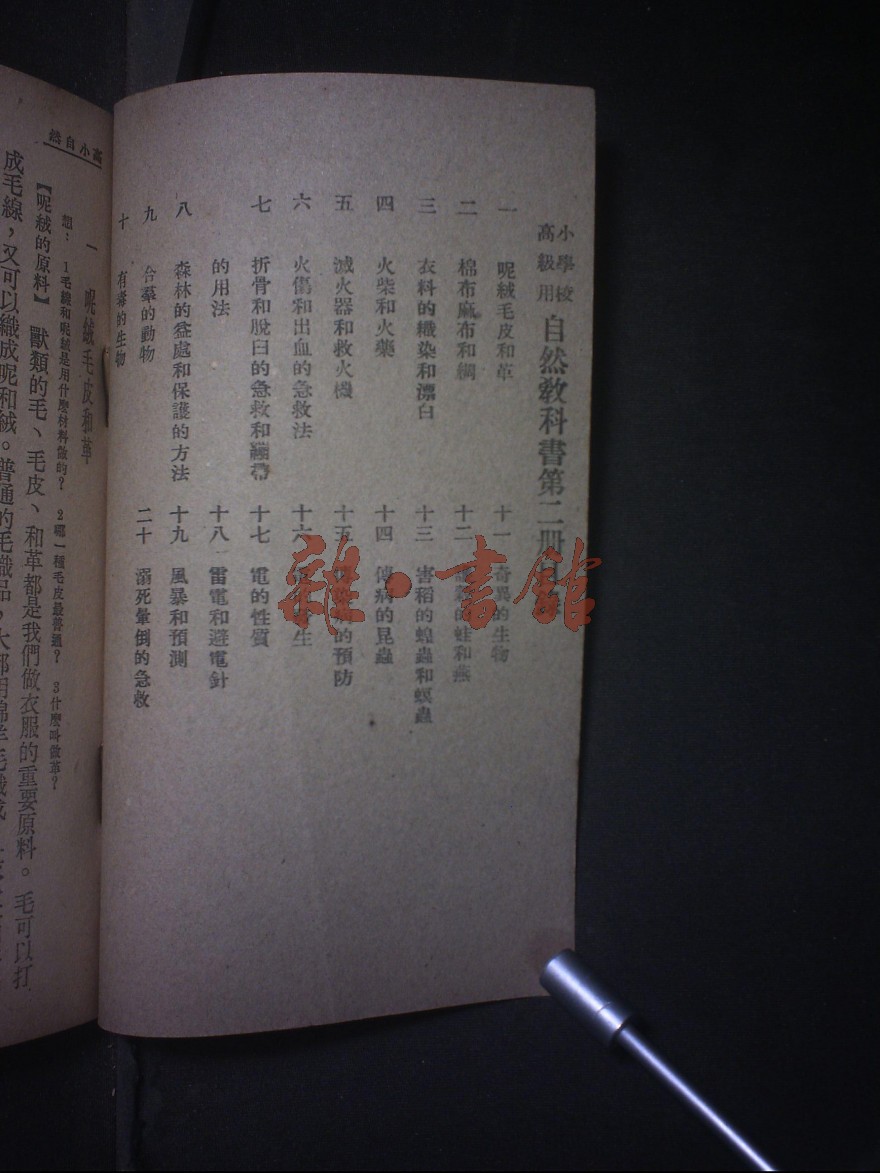 小學校
高級用
自然教科書第二册目
一 呢絨毛皮和革
二 棉布麻布和綢
三 衣料的織染和漂白
四 火柴和火藥
五 滅火器和救火機
六 火傷和出血的急救法
七 折骨和脫臼的急救和繃帶
的用法
八 森林的益處和保護的方法
九 合羣的動物
十 有毒的生物
十一 奇異的生物
十二 的蛙和燕
十三 害稻的蝗蟲和螟蟲
十四 傳病的昆蟲
十五 病的預防
十六 生
十七 電的性質
十八 雷電和避電針
十九 風暴和預測
二十 溺死暈倒的急救
雜·書館
高小自然
一 呢絨毛皮和革
想: 1毛線和呢絨是用什麽材料做的? 2哪一種毛皮最普通? 3什麽叫做革?
【呢絨的原料】 獸類的毛、毛皮、和革都是我們做衣服的重要原料。毛可以打
成毛線,又可以織成呢和絨。普通的毛織品,大都用綿羊毛織成